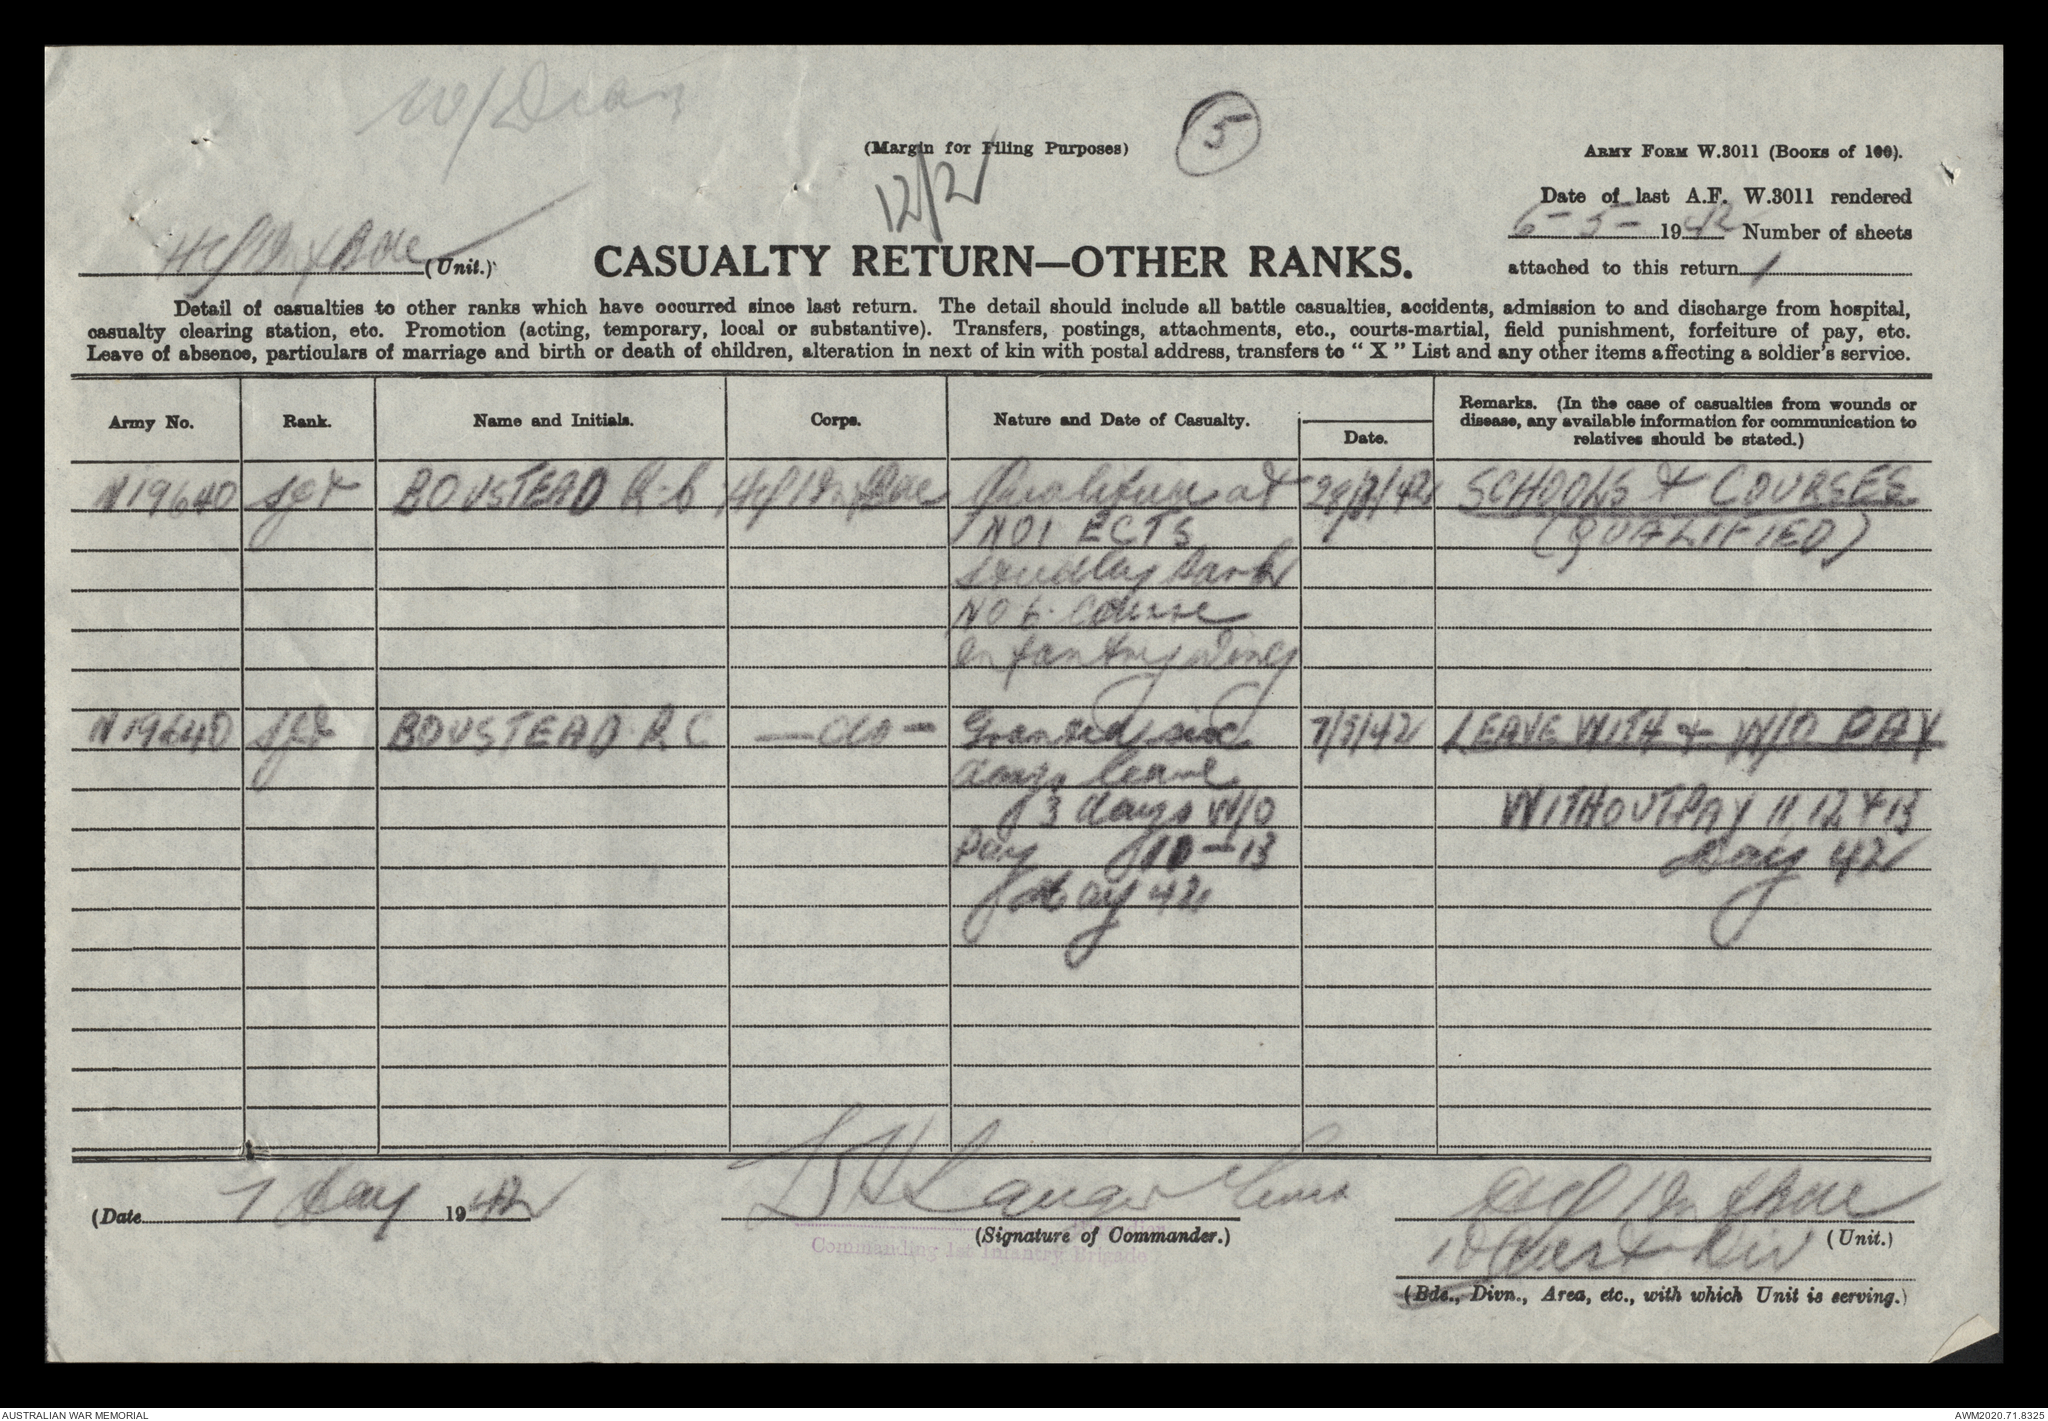 W/Diary
(Margin for Filing Purposes)
5
12/2
ARMY FORM W.3011 (BOOKS OF 100).
Date of last A.F. W.3011 rendered
6-5-1942 Number of sheets
attached to this return 1
HQ 1 Inf Bde (Unit.)
CASUALTY RETURN—OTHER RANKS.
Detail of casualties to other ranks which have occurred since last return. The detail should include all battle casualties, accidents, admission to and discharge from hospital,
casualty clearing station, etc. Promotion (acting, temporary, local or substantive). Transfers, postings, attachments, etc., courts-martial, field punishment, forfeiture of pay, etc.
Leave of absence, particulars of marriage and birth or death of children, alteration in next of kin with postal address, transfers to "X" List and any other items affecting a soldier's service.
Army No. Rank. Name and Initials. Corps. Nature and Date of Casualty. Date. Remarks. (In the case of casualties from wounds or
disease, any available information for communication to
relatives should be stated.)
N19640 Sgt BOUSTEAD R.C HQ 1 Inf Bde Qualified at SCHOOLS & COURSES
NO1 ECTS (QUALIFIED)
Studley Park
No 6 Course
Infantry Wing
N19640 Sgt BOUSTEAD R.C —do— Granted six 7/5/42 LEAVE WITH & W/O PAY
days leave
3 days W/O WITHOUT PAY 11 12 & 13
pay 10-13 May 42
May 42
(Date 7 May 1942
(Signature of Commander.)
Commanding 1st Infantry Brigade
HQ 1 Inf Bde (Unit.)
1 Aust Div
(Bde., Divn., Area, etc., with which Unit is serving.)
AUSTRALIAN WAR MEMORIAL
AWM2020.71.8325